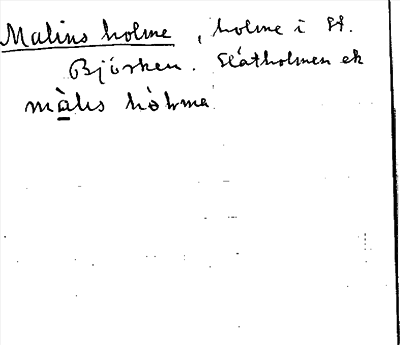 Malins holme, holme i St.
Björken. Slåtholmen ek
màlis hòlma